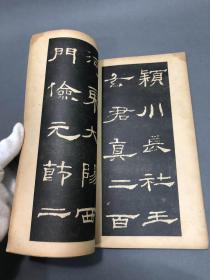 潁川長社王
玄君真二百
河東大陽西
門儉元節二